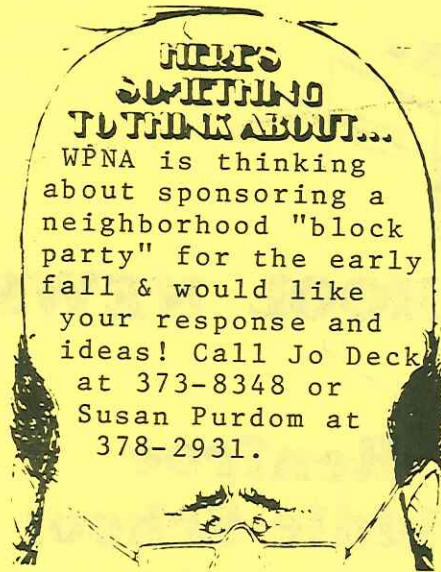 HERE'S
SOMETHING
TO THINK ABOUT...
WPNA is thinking
about sponsoring a
neighborhood "block
party" for the early
fall & would like
your response and
ideas! Call Jo Deck
at 373-8348 or
Susan Purdom at
378-2931.